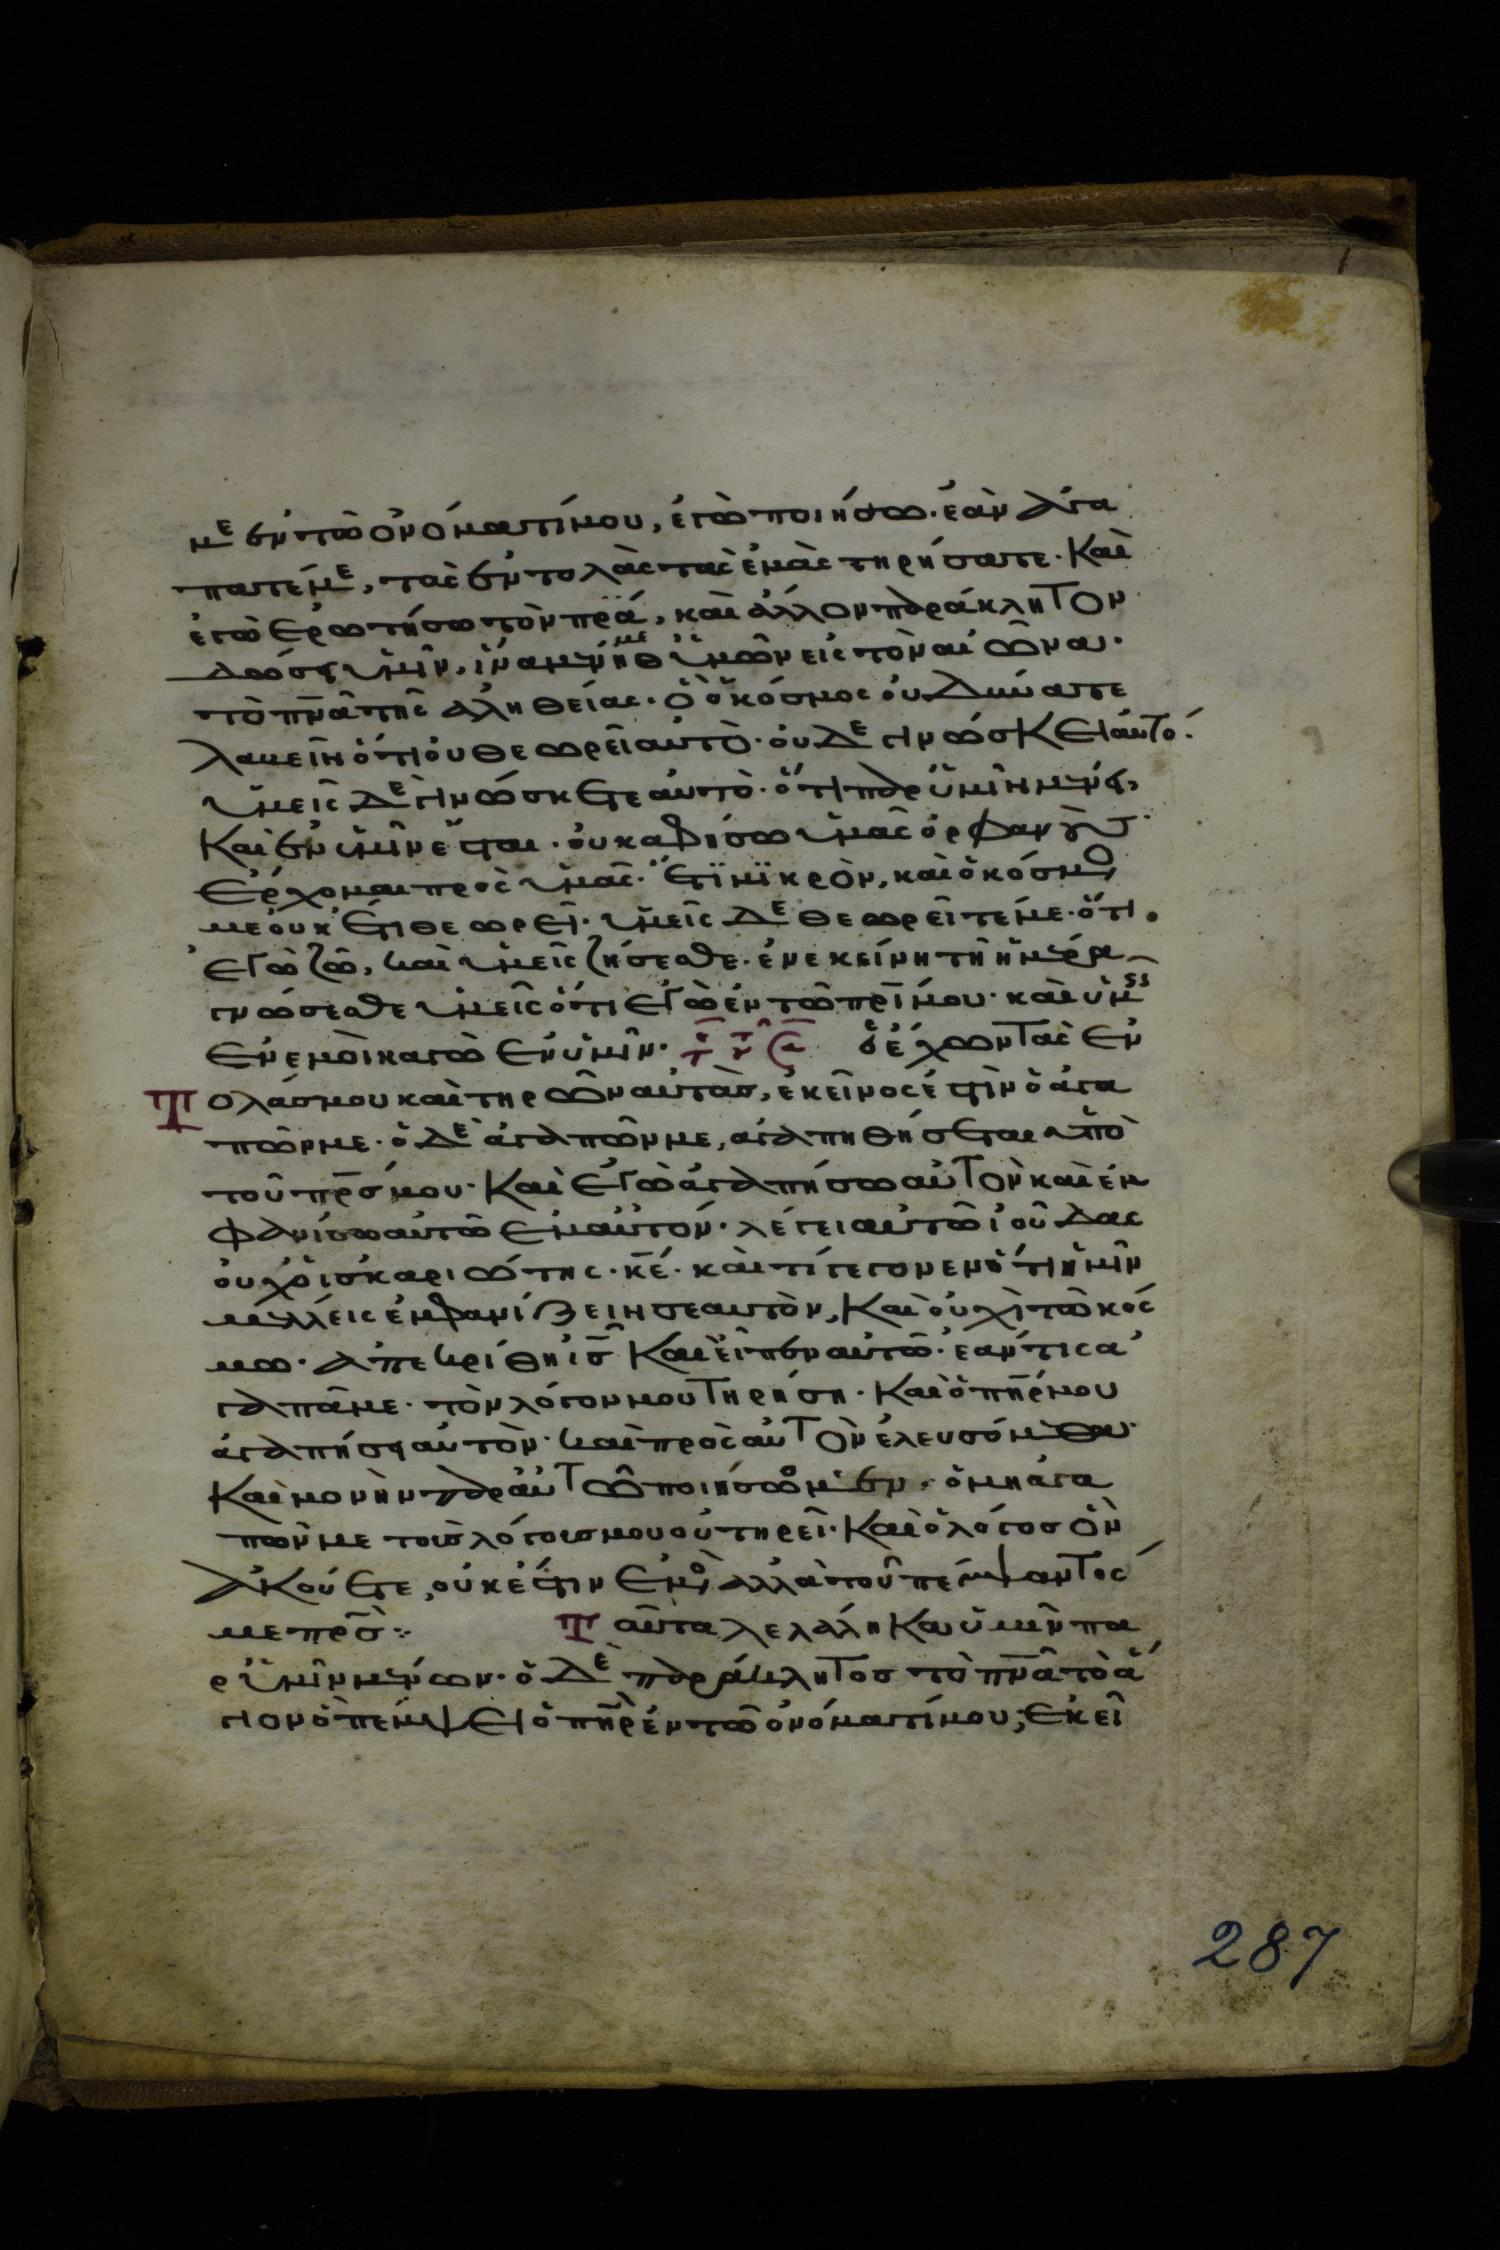 με ἐν τῶ ὀνόματί μου, ἐγὼ ποιήσω. ἐὰν ἀγα
πατέ με, τὰς ἐντολὰς τὰς ἐμὰς τηρήσατε. Καὶ
ἐγὼ ἐρωτήσω τὸν πρ̅α, καὶ ἄλλον παράκλητον
δώσει ὑμῖν, ἵνα μένη μεθ ὑμῶν εἰς τὸν αἰῶνα.
τὸ πν̅α τῆς ἀληθείας. ὃ ὁ κόσμος οὐ δύναται
λαβεῖν ὅτι οὐ θεωρεῖ αὐτὸ. οὐδὲ γινώσκει αὐτό.
ὑμεῖς δὲ γινώσκετε αὐτὸ. ὅτι παρ ὑμῖν μένει,
Καὶ ἐν ὑμῖν ἔσται. οὐκ αφήσω ὑμᾶς ὀρφανούς.
Ἔρχομαι πρὸς ὑμᾶς. Ἔτι μικρὸν, καὶ ὁ κόσμος
με οὐκ ἔτι θεωρεῖ. ὑμεῖς δὲ θεωρεῖτέ με. ὅτι
ἐγὼ ζῶ, καὶ ὑμεῖς ζήσεσθε. ἐν ἐκείνη τῆ ἡμέρα
γνώσεσθε ὑμεῖς ὅτι ἐγὼ ἐν τῶ πρ̅ί μου. καὶ ὑμεῖς
ἐν ἐμοὶ κἀγὼ ἐν ὑμῖν. ὁ ἔχων τὰς ἐν
Τολάς μου καὶ τηρῶν αὐτὰς, ἐκεῖνος ἐστὶν ὁ ἀγα
πῶν με. ὁ δὲ ἀγαπῶν με, ἀγαπηθήσεται ὑπὸ
τοῦ πρ̅ς μου. Καὶ ἐγὼ ἀγαπήσω αὐτὸν καὶ ἐμ
φανίσω αὐτῶ ἐμαὐτόν. λέγει αὐτῶ ἰούδας
οὐχ ὁ ἰσκαριώτης. κ̅ε. καὶ τί γέγονεν ὅτι ἡμῖν
μέλλεις ἐμφανίζειν σεαυτὸν, Καὶ οὐχὶ τῶ κόσ
μω. ἀπεκρίθη ἰ̅ς Καὶ εἶπεν αὐτῶ. ἐάν τις ἀ
γαπᾶ με. τὸν λόγον μου τηρήση. Καὶ ὁ πη̅ρ μου
ἀγαπήσει αὐτὸν. καὶ πρὸς αὐτὸν ἐλευσόμεθα.
Καὶ μονὴν παρ αὐτῶ ποιήσωμεν. ὁ μὴ ἀγα
πῶν με τοὺς λόγους μου οὐ τηρεῖ. Καὶ ὁ λόγος ὃν
ἀκούετε, οὐκ ἔστιν ἐμὸς ἀλλὰ τοῦ πέμψαντός
με πρ̅ς:· Ταῦτα λελάληκα ὑμῖν πα
ρ ὑμῖν μένων. ὁ δὲ παράκλητος τὸ πν̅α τὸ ἅ
γιον ὃ πέμψει ὁ πη̅ρ ἐν τῶ ὀνόματί μου, ἐκεῖ
287